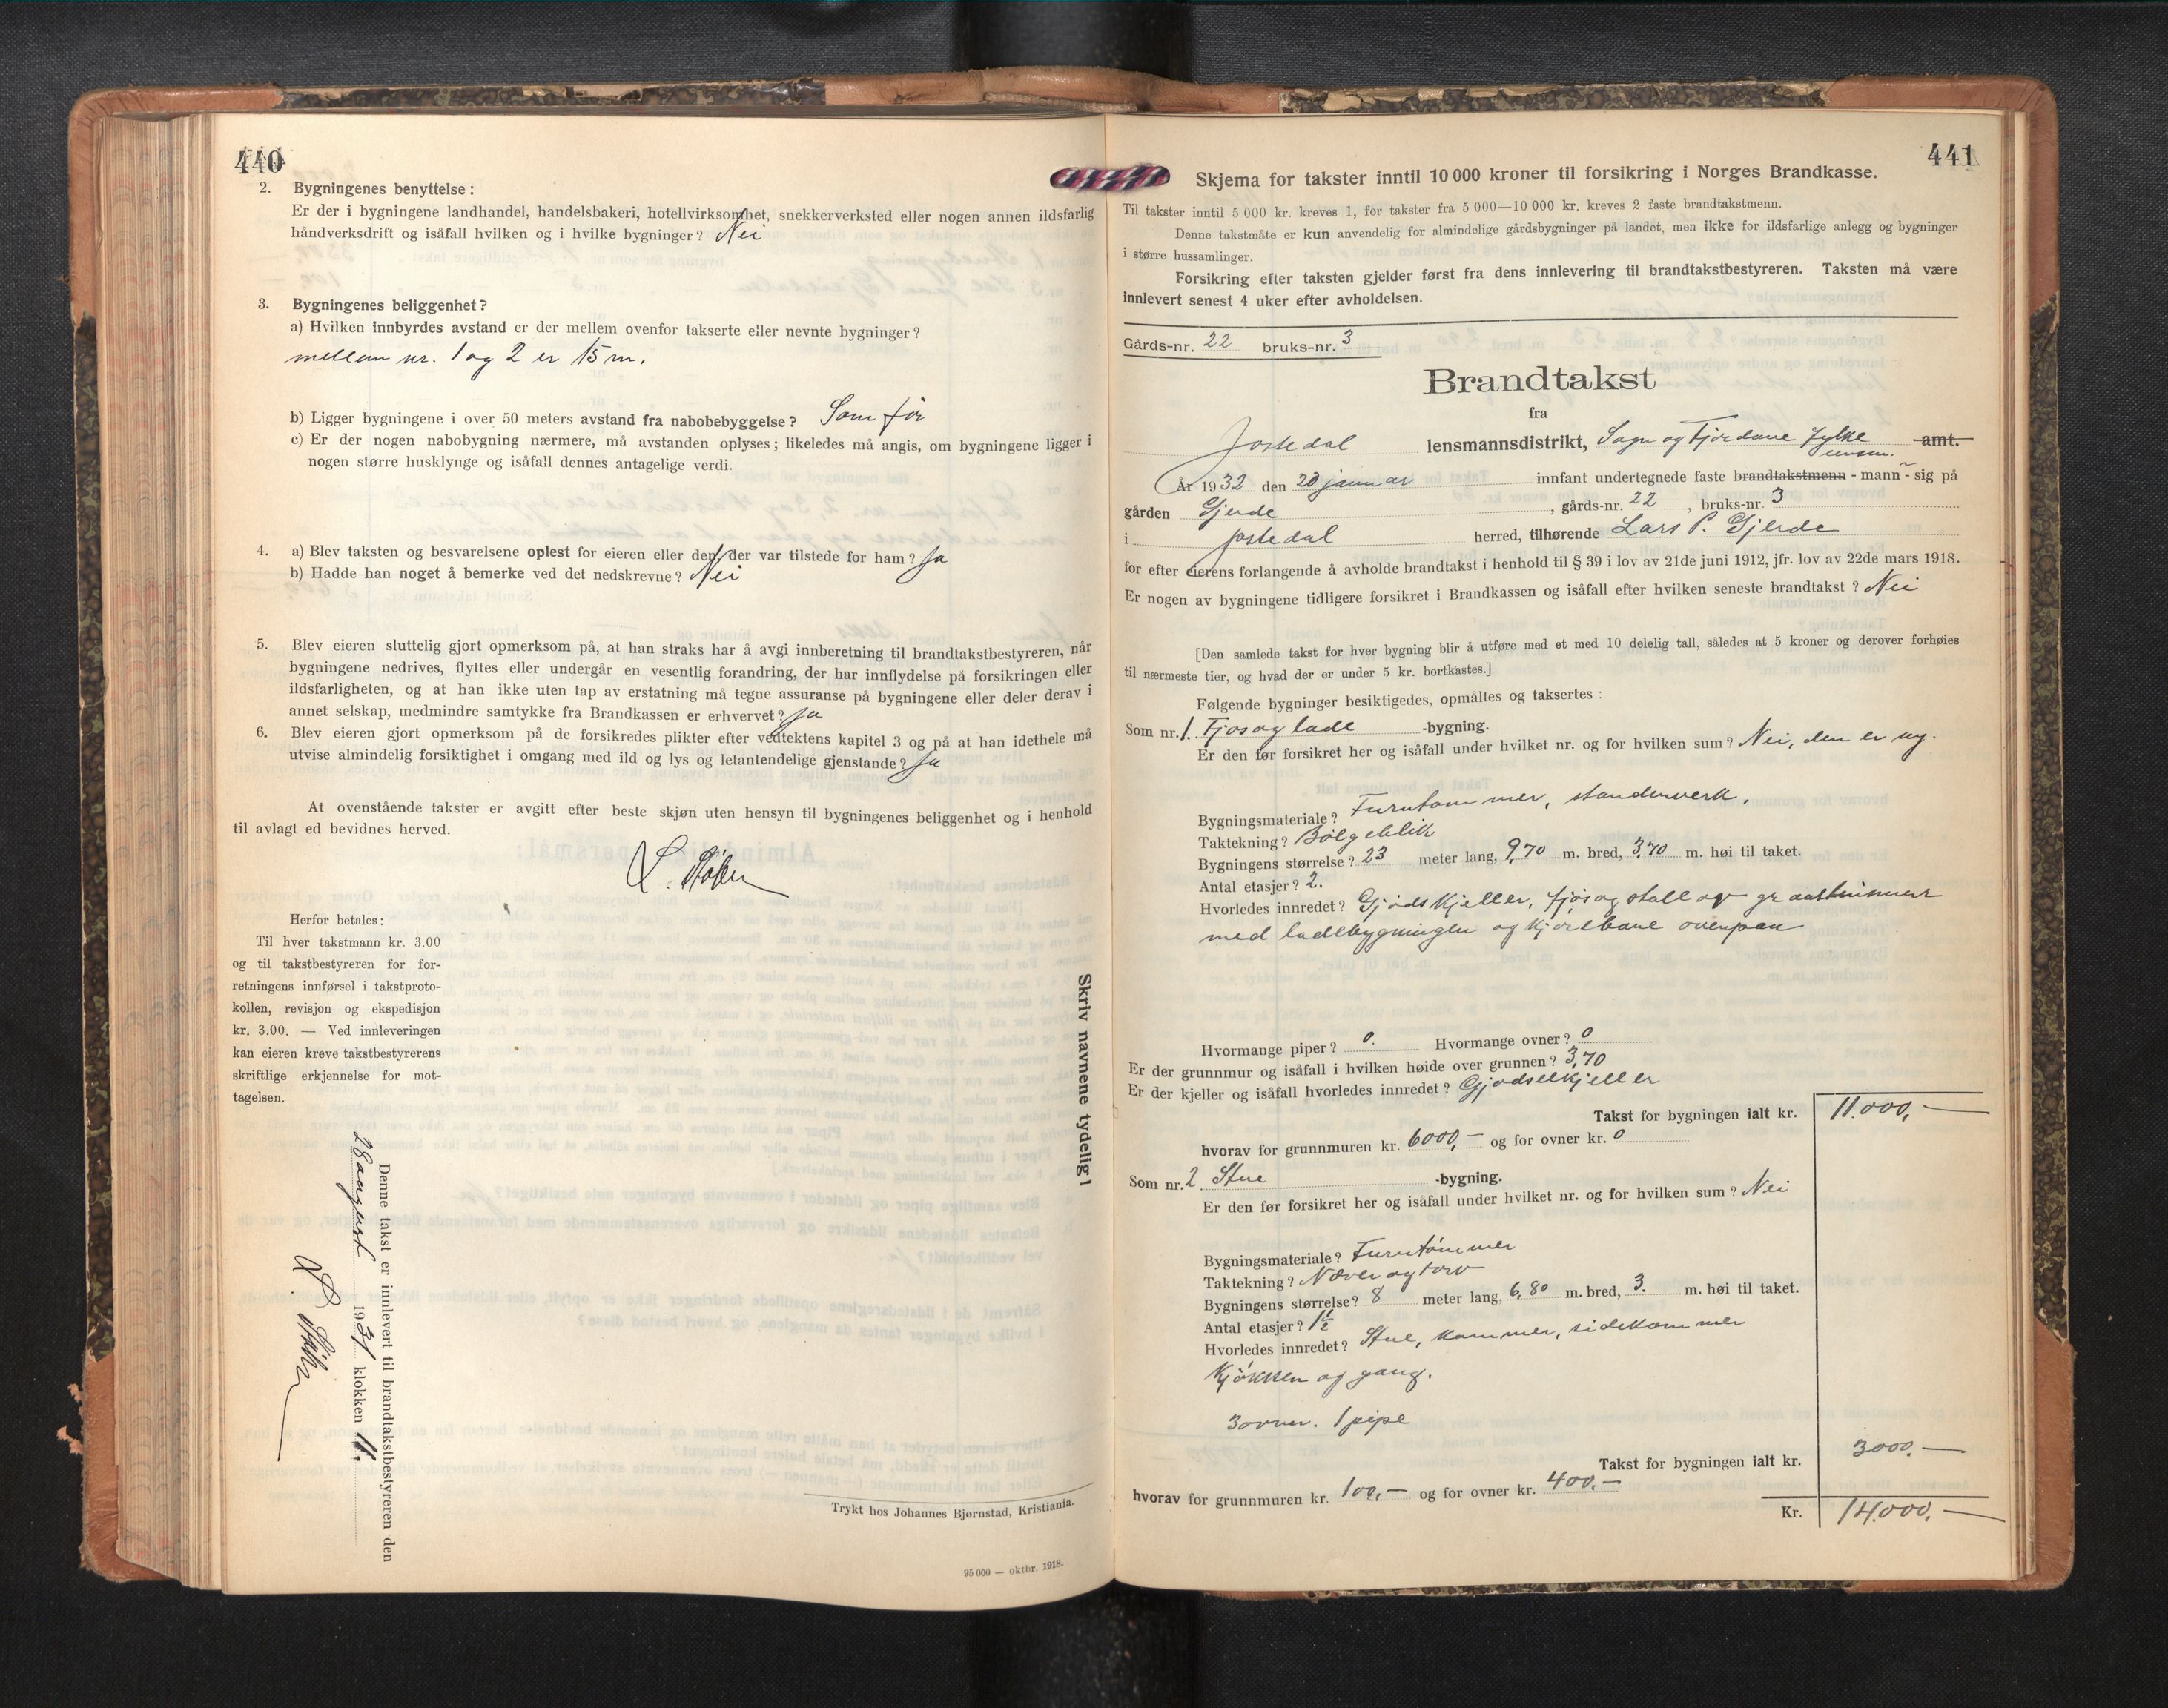 440
2. Bygningenes benyttelse:
Er der i bygningene landhandel, handelsbakeri, hotellvirksomhet, snekkerverksted eller nogen annen ildsfarlig
håndverksdrift og isåfall hvilken og i hvilke bygninger? Nei
3. Bygningenes beliggenhet?
a) Hvilken innbyrdes avstand er der mellem ovenfor takserte eller nevnte bygninger?
mellem nr. 1 og 2 er 15 m.
b) Ligger bygningene i over 50 meters avstand fra nabobebyggelse? Som før
c) Er der nogen nabobygning nærmere, må avstanden oplyses; likeledes må angis, om bygningene ligger i
nogen større husklynge og isåfall dennes antagelige verdi.
4. a) Blev taksten og besvarelsene oplest for eieren eller den, der var tilstede for ham? Ja
b) Hadde han noget å bemerke ved det nedskrevne? Nei
5. Blev eieren sluttelig gjort opmerksom på, at han straks har å avgi innberetning til brandtakstbestyreren, når
bygningene nedrives, flyttes eller undergår en vesentlig forandring, der har innflydelse på forsikringen eller
ildsfarligheten, og at han ikke uten tap av erstatning må tegne assuranse på bygningene eller deler derav i
annet selskap, medmindre samtykke fra Brandkassen er erhvervet? Ja
6. Blev eieren gjort opmerksom på de forsikredes plikter efter vedtektens kapitel 3 og på at han idethele må
utvise almindelig forsiktighet i omgang med ild og lys og letantendelige gjenstande? Ja
At ovenstående takster er avgitt efter beste skjøn uten hensyn til bygningenes beliggenhet og i henhold
til avlagt ed bevidnes herved.
Herfor betales:
Til hver takstmann kr. 3.00
og til takstbestyreren for for-
retningens innførsel i takstproto-
kollen, revisjon og ekspedisjon
kr. 3.00. — Ved innleveringen
kan eieren kreve takstbestyrerens
skriftlige erkjennelse for mot-
tagelsen.
Denne takst er innlevert til brandtakstbestyreren den
28 august 1931 klokken 11.
Skriv navnene tydelig!
Trykt hos Johannes Bjørnstad, Kristiania.
95 000 — oktbr. 1918.
441
Skjema for takster inntil 10 000 kroner til forsikring i Norges Brandkasse.
Til takster inntil 5 000 kr. kreves 1, for takster fra 5 000—10 000 kr. kreves 2 faste brandtakstmenn.
Denne takstmåte er kun anvendelig for almindelige gårdsbygninger på landet, men ikke for ildsfarlige anlegg og bygninger
i større hussamlinger.
Forsikring efter taksten gjelder først fra dens innlevering til brandtakstbestyreren. Taksten må være
innlevert senest 4 uker efter avholdelsen.
Gårds-nr. 22 bruks-nr. 3
Brandtakst
fra
Jostedal lensmannsdistrikt, Sogn og Fjordane fylke amt.
År 1932 den 20 januar innfant undertegnede faste brandtakstmenn - mann - sig på
gården Gjerde, gårds-nr. 22, bruks-nr. 3
i Jostedal herred, tilhørende Lars P. Gjerde
for efter eierens forlangende å avholde brandtakst i henhold til § 39 i lov av 21de juni 1912, jfr. lov av 22de mars 1918.
Er nogen av bygningene tidligere forsikret i Brandkassen og isåfall efter hvilken seneste brandtakst? Nei
[Den samlede takst for hver bygning blir å utføre med et med 10 delelig tall, således at 5 kroner og derover forhøies
til nærmeste tier, og hvad der er under 5 kr. bortkastes.]
Følgende bygninger besiktigedes, opmåltes og taksertes:
Som nr. 1. Fjos og lade -bygning.
Er den før forsikret her og isåfall under hvilket nr. og for hvilken sum? Nei, den er ny.
Bygningsmateriale? Furutømmer, standerverk.
Taktekning? Bølgeblik
Bygningens størrelse? 23 meter lang, 9,70 m. bred, 3,70 m. høi til taket.
Antal etasjer? 2.
Hvorledes innredet? Gjødskjeller, fjøs og stall av graasteinmur
med ladebygningen og kjørebane ovenpaa
Hvormange piper? 0. Hvormange ovner? 0
Er der grunnmur og isåfall i hvilken høide over grunnen? 3,70
Er der kjeller og isåfall hvorledes innredet? Gjødselkjeller
Takst for bygningen ialt kr. 11.000,—
hvorav for grunnmuren kr. 6000,— og for ovner kr. 0
Som nr. 2 Stue -bygning.
Er den før forsikret her og isåfall under hvilket nr. og for hvilken sum? Nei
Bygningsmateriale? Furutømmer
Taktekning? Næver og torv
Bygningens størrelse? 8 meter lang, 6,80 m. bred, 3. m. høi til taket.
Antal etasjer? 1½
Hvorledes innredet? Stue, kammer, sidekammer
Kjøkken og gang.
3 ovner. 1 pipe
Takst for bygningen ialt kr. 3000.—
hvorav for grunnmuren kr. 100,— og for ovner kr. 400.—
Kr. 14.000,—